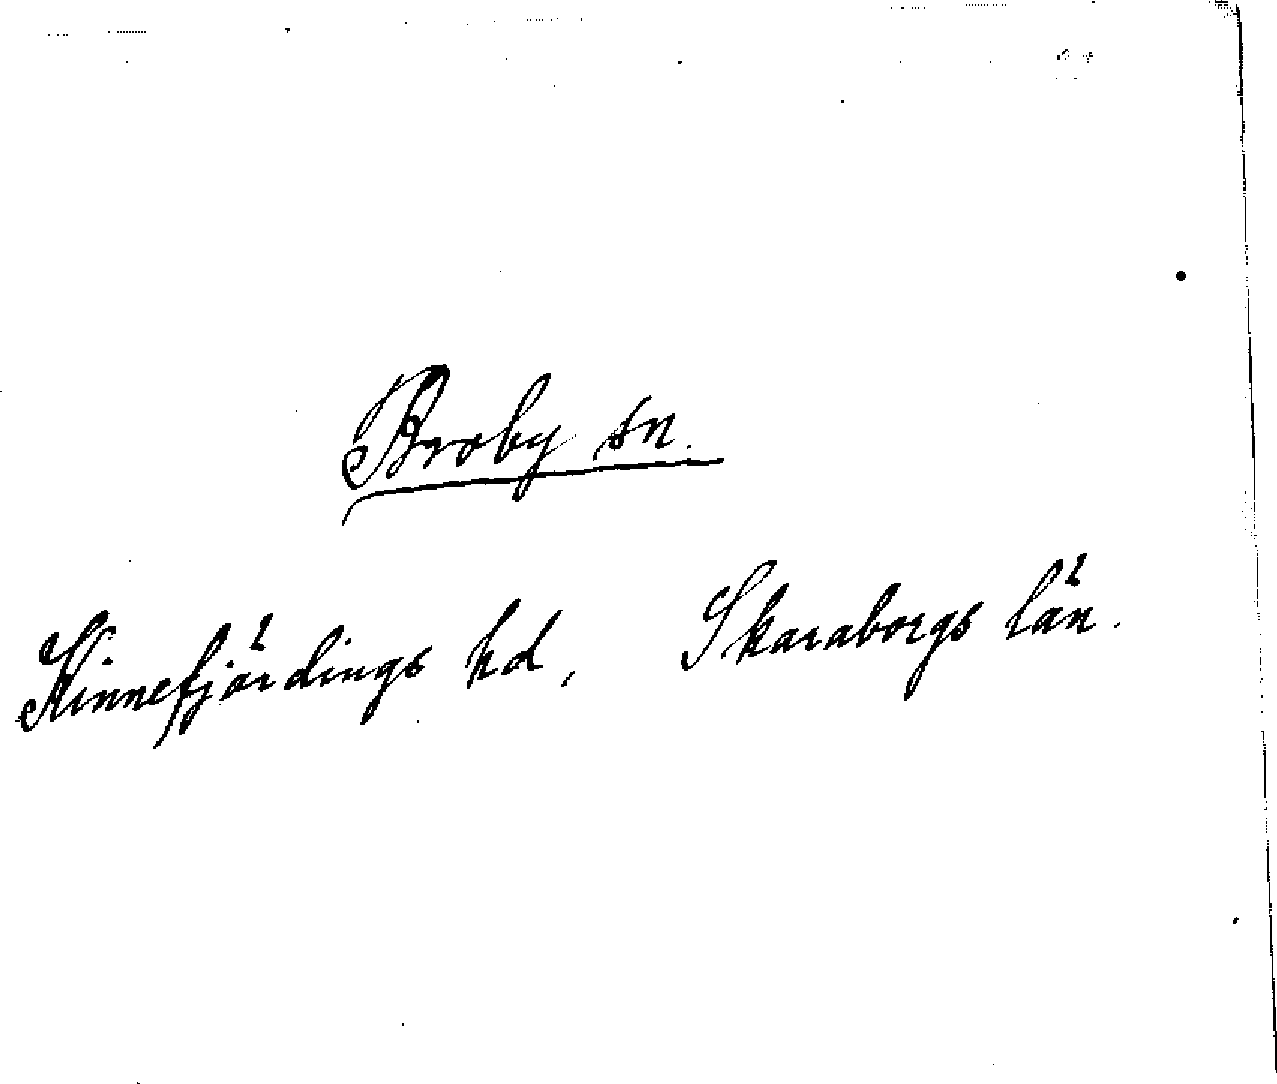 Broby sn.
Kinnefjärdings hd, Skaraborgs län.